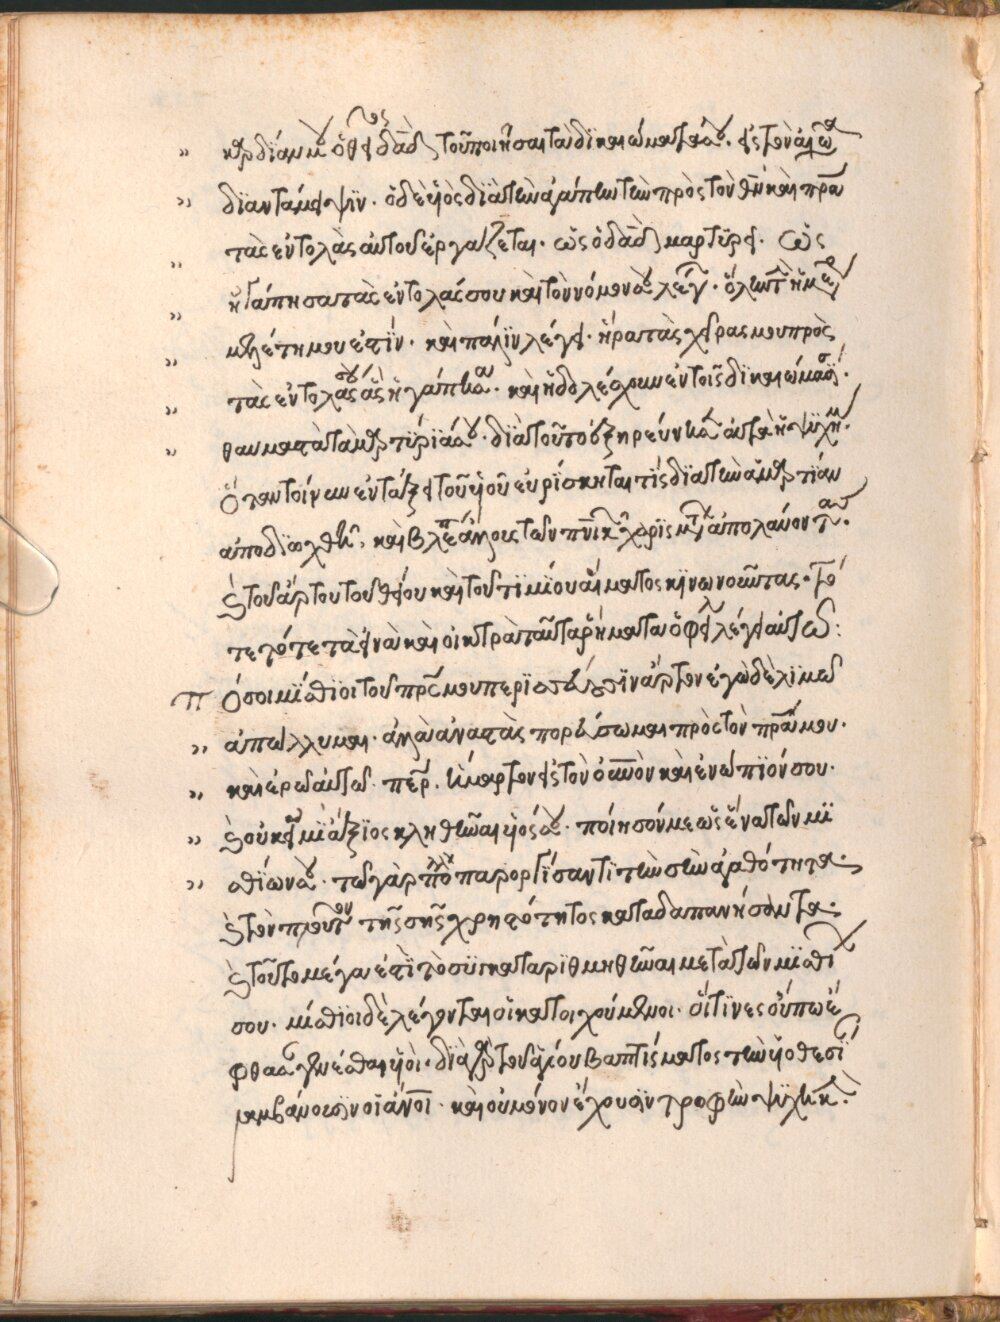 καρδίαν μου ὁ θεῖος δαδ τοῦ ποιῆσαι τὰ δικαιώματά σου. εἰς τὸν αἰῶνα
δι' ἀντάμειψιν. ὁ δὲ υἱὸς διὰ τὴν ἀγάπην τὴν πρὸς τὸν θν καὶ πρα
τὰς ἐντολὰς αὐτοῦ ἐργάζεται. ὡς ὁ δαδ μαρτυρεῖ. ὡς
ἠγάπησα τὰς ἐντολάς σου καὶ τὸν νόμον σου λέγει. ὅλην τὴν ἡμέραν
μελέτη μου ἐστίν. καὶ πάλιν λέγει. ἦρα τὰς χεῖρας μου πρὸς
τὰς ἐντολάς σου ἃς ἠγάπησα. καὶ ἠδολέσχουν ἐν τοῖς δικαιώμασί σου.
θαυμαστὰ τὰ μαρτύριά σου. διὰ τοῦτο ἐξηρεύνησεν αὐτὰ ἡ ψυχή μου.
Ὅταν τοίνυν ἐν τάξει τοῦ υἱοῦ εὑρίσκηταί τις διὰ τὴν ἁμαρτίαν
ἀποδιωχθῇ, καὶ βλέπει ἄλλους τῶν πνικῶν χαρισμάτων ἀπολαύοντας.
καὶ τοῦ ἄρτου τοῦ θείου καὶ τοῦ τιμίου αἵματος κοινωνοῦντας. τό
τε γὸ τε τὰ ἐλεεινὰ καὶ οἰκτρὰ ταῦτα ῥήματα ὀφείλει λέγειν ἑαυτῷ:
Πόσοι μίσθιοι τοῦ πρς μου περισσεύουσιν ἄρτων ἐγὼ δὲ λιμῷ
ἀπώλλυμαι. ἀλλὰ ἀναστὰς πορεύσομαι πρὸς τὸν πρα μου.
καὶ ἐρῶ αὐτῷ. περ. ἥμαρτον εἰς τὸν οὐνὸν καὶ ἐνώπιόν σου.
καὶ οὐκέτι εἰμὶ ἄξιος κληθῆναι υἱός σου. ποίησόν με ὡς ἕνα τῶν μι
σθίων σου. τῷ γὰρ πολλὰ παροργίσαντι τὴν σὴν ἀγαθότητα.
καὶ τὸν πλοῦτον τῆς σῆς χρηστότητος καταδαπανήσαντα.
καὶ τοῦτο μέγα ἐστὶ τὸ συγκαταριθμηθῆναι μετὰ τῶν μισθί
σου. μίσθιοι δὲ λέγονται οἱ κατηχούμενοι. οἵτινες οὔπω ἔ
φθασαν γενέσθαι υἱοί. διὰ γὰρ τοῦ ἁγίου βαπτίσματος τὴν υἱοθεσίαν
λαμβάνουσιν οἱ ἄνοι. καὶ οὐ μόνον ἔχουσιν τροφὴν ψυχικήν.